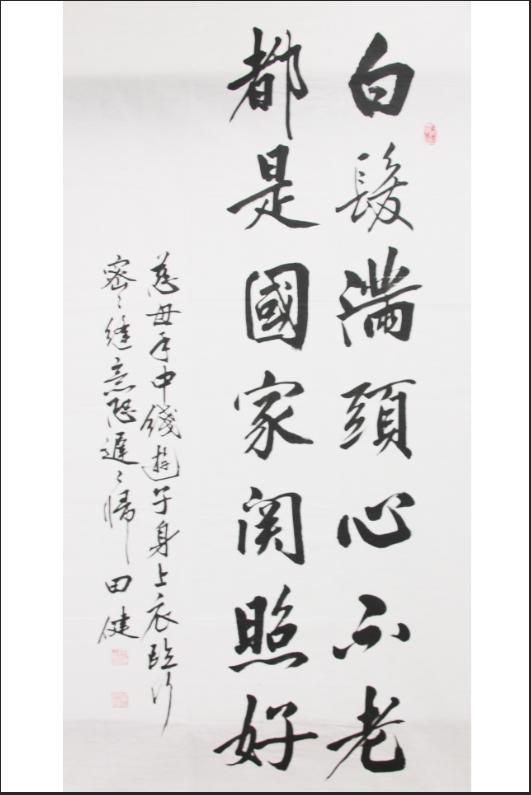 白髮滿頭心不老
都是國家関照好
慈母手中綫遊子身上衣臨行
密〻縫意恐遲〻歸 田健